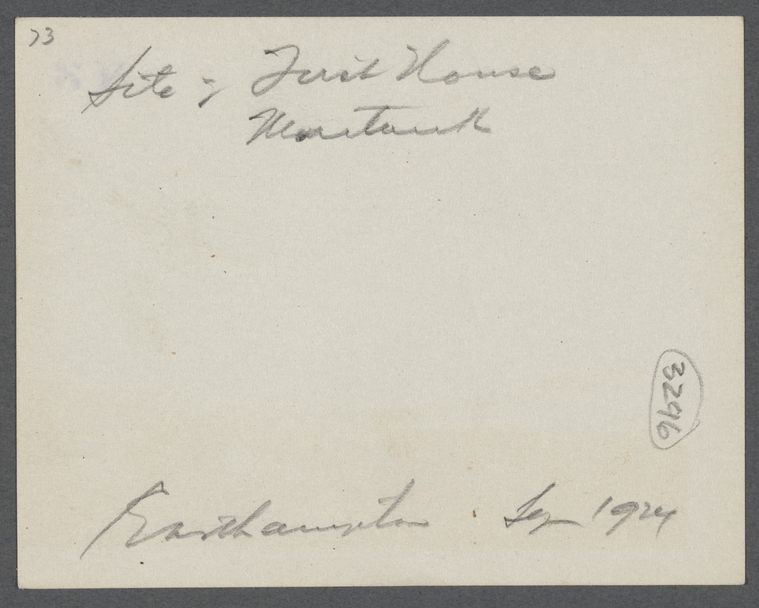 73
Site of First House
Montauk
3296
Easthampton Sep 1924